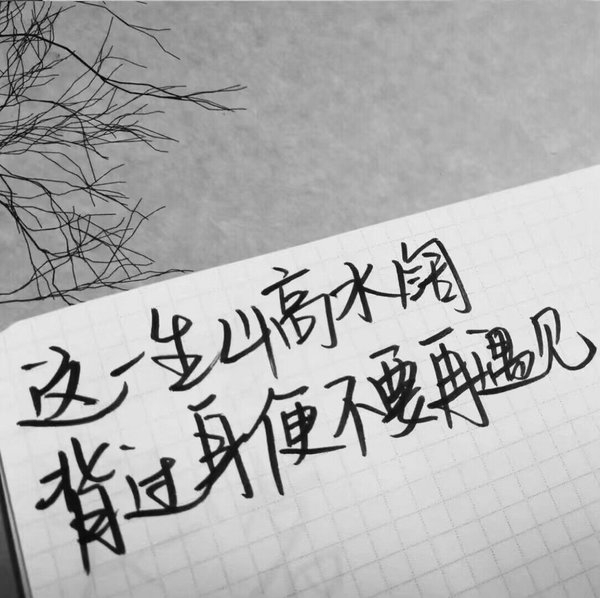 这一生山高水阔
背过身便不要再遇见